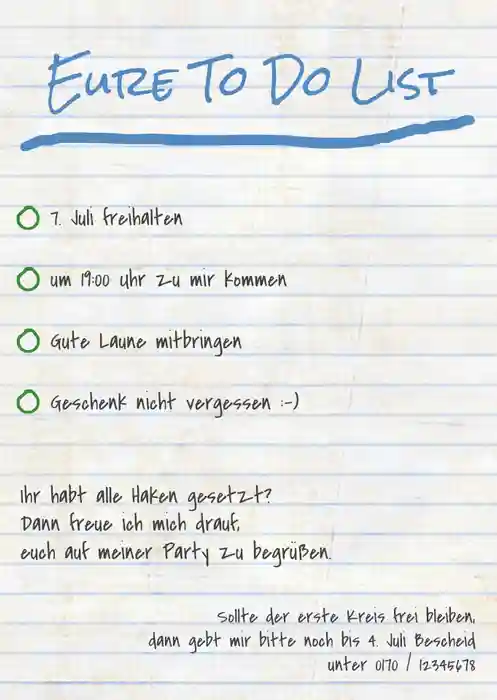 Eure To Do List
7. Juli freihalten
um 19:00 Uhr zu mir kommen
Gute Laune mitbringen
Geschenk nicht vergessen :-)
Ihr habt alle Haken gesetzt?
Dann freue ich mich drauf,
euch auf meiner Party zu begrüßen.
Sollte der erste Kreis frei bleiben,
dann gebt mir bitte noch bis 4. Juli Bescheid
unter 0170 / 12345678